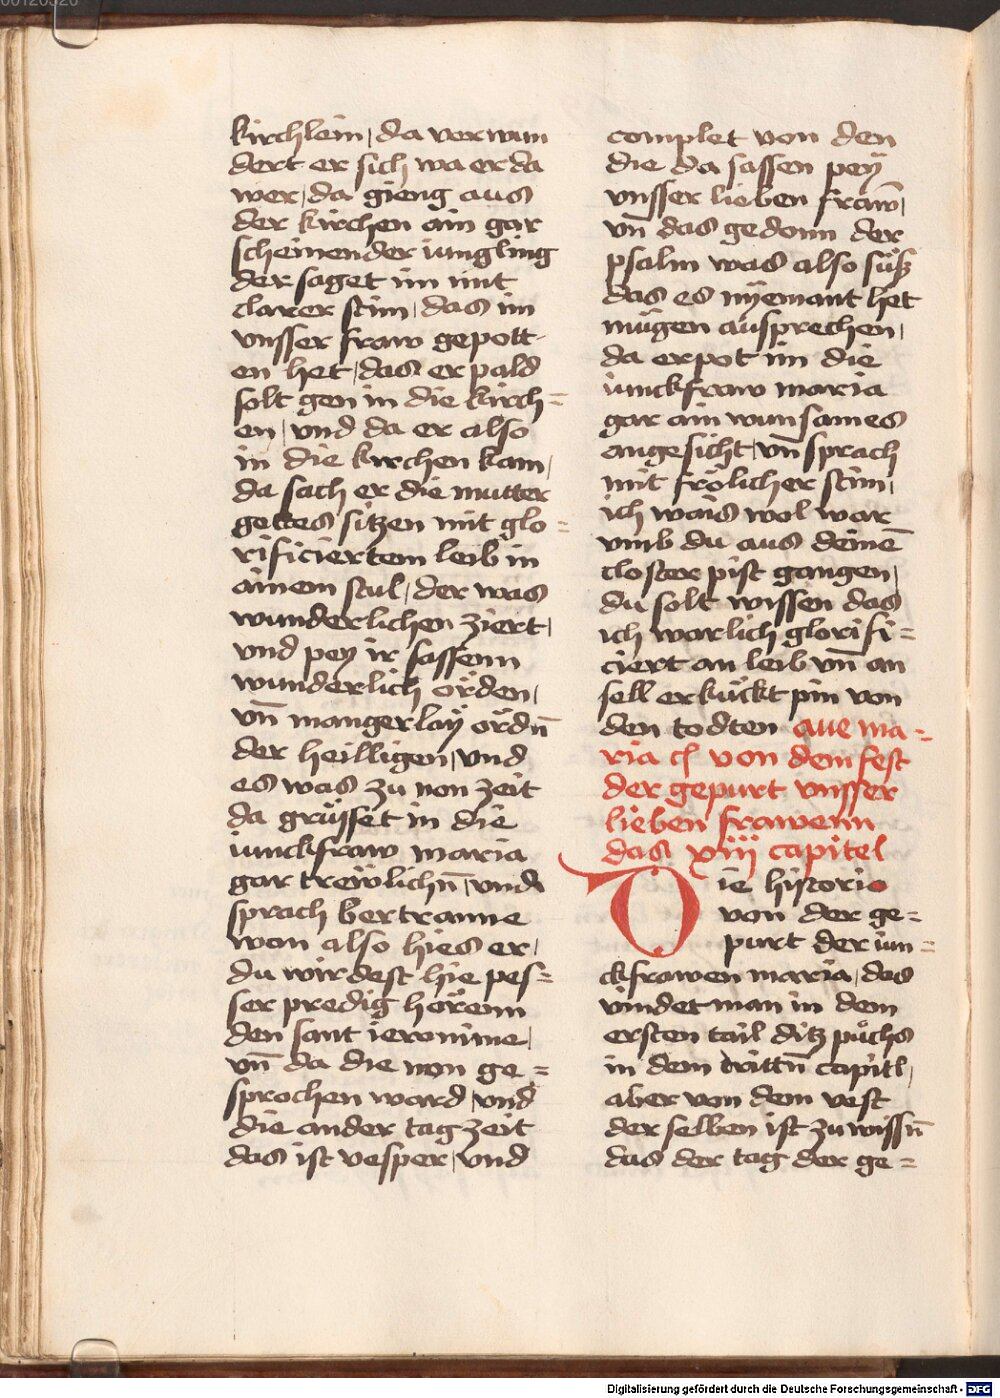 kirchlein, da verwun
dert er sich wa er da
wer, da gieng aus
der kirchen ain gar
scheinender iungling
der saget im mit
clarer stim, das im
vnsser fraw gepott-
en het, das er pald
solt gen in die kirch=
en, vnd da er also
in die kirchen kam,
da sach er die mutter
gottes sitzen mit glo=
rificiertem leib in
ainem stul, der was
wunderlichen ziert,
vnd pey ir sassenn
wunderlich örden,
vn̄ mangerlaÿ ördn̄
der heilligen, vnd
es was zu non zeit
da grüsset in die
iunckfraw maria
gar trewlichn̄, vnd
sprach bertranne
won also hies er,
du wirdest hie pes=
ser predig hörenn
den sant ieronime,
vn̄ da die non ge=
sprochen ward, vnd
die ander tag zeit
das ist vesper, vnd
complet von den
die da sassen peÿ
vnsser lieben fraw̄,
vn̄ das gedonn der
psalm was also süß
das es nÿemant het
mugen aüsprechen,
da erpot im die
iunckfraw maria
gar ain wunsames
angesicht, vn̄ sprach
mit frölicher stim,
ich wais wol war
vmb du aus deinē
closter pist gangen,
du solt wissen das
ich warlich glorifi=
ciert an leib vn̄ an
sell erkückt pin von
den todten aue ma=
ria von dem fest
der gepurt vnsser
lieben frawenn
das xiiij capitel
Die historie
von der ge=
purt der iun=
ckfrawen maria, das
vindet man in dem
ersten tail ditz püchs
in dem drittn̄ capitl,
aber von dem vest
der selben ist zu wissn̄
das der tag der ge=
Digitalisierung gefördert durch die Deutsche Forschungsgemeinschaft - DFG